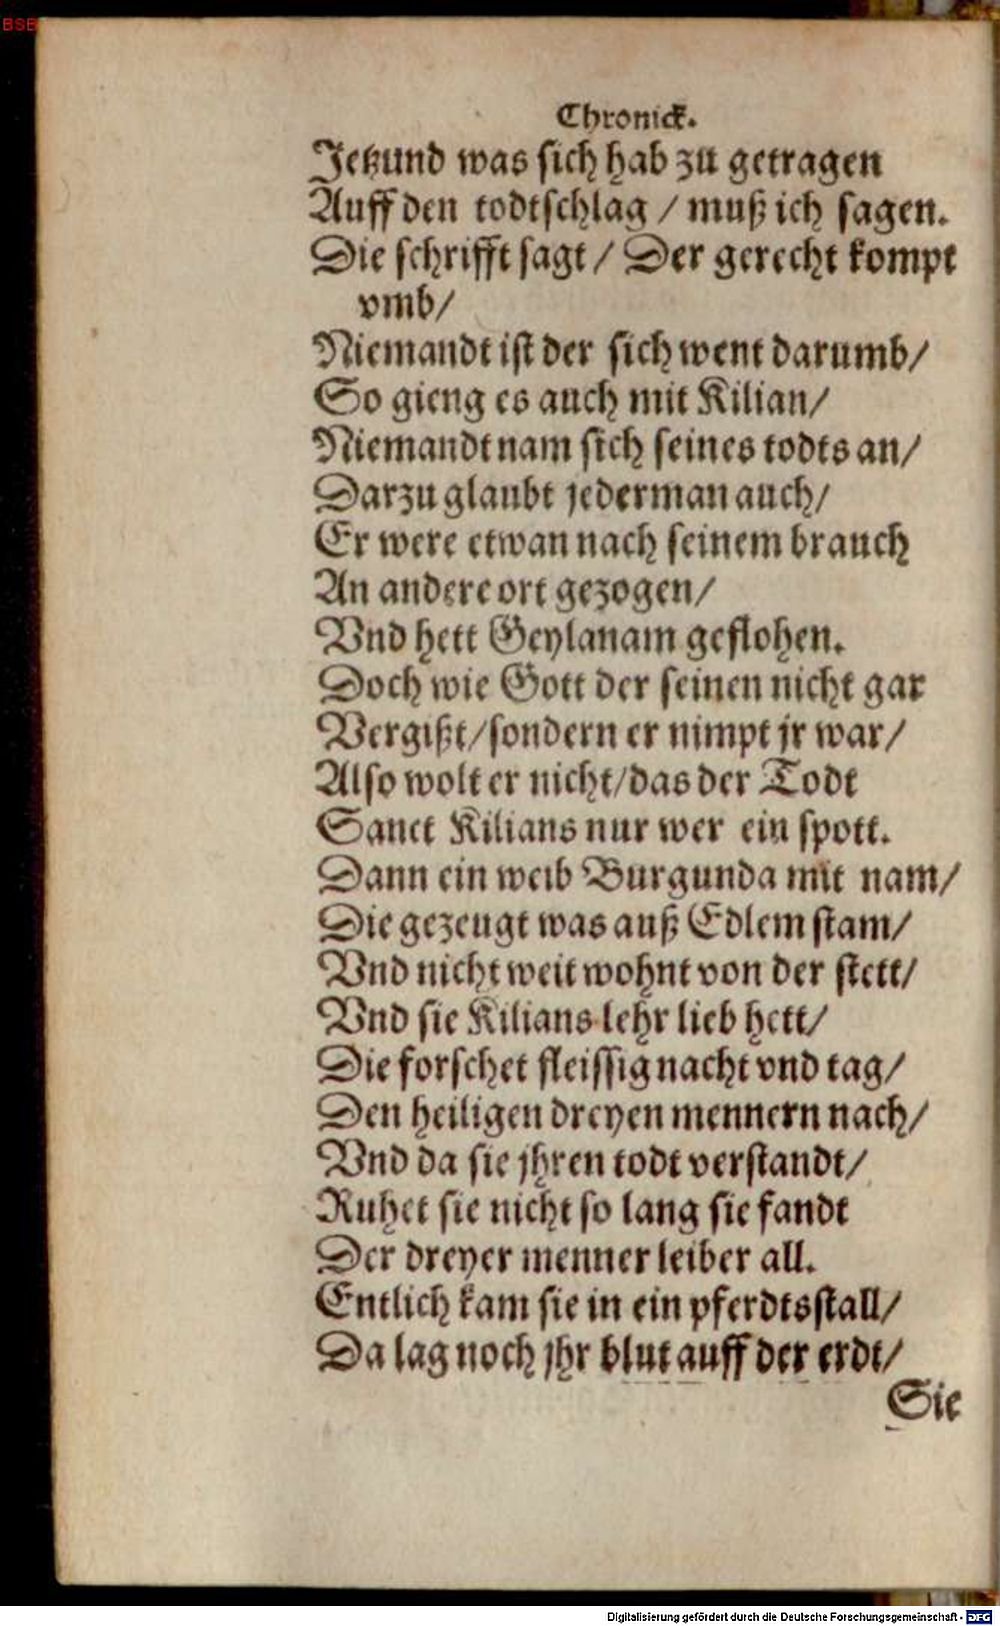 BSB
Chronick.
Jetzund was sich hab zu getragen
Auff den todtschlag / muß ich sagen.
Die schrifft sagt / Der gerecht kompt
vmb/
Niemandt ist der sich went darumb/
So gieng es auch mit Kilian/
Niemandt nam sich seines todts an/
Darzu glaubt jederman auch/
Er were etwan nach seinem brauch
An andere ort gezogen/
Vnd hett Geylanam geflohen.
Doch wie Gott der seinen nicht gar
Vergißt/sondern er nimpt jr war/
Also wolt er nicht/das der Todt
Sanct Kilians nur wer ein spott.
Dann ein weib Burgunda mit nam/
Die gezeugt was auß Edlem stam/
Vnd nicht weit wohnt von der stett/
Vnd sie Kilians lehr lieb hett/
Die forschet fleissig nacht vnd tag/
Den heiligen dreyen mennern nach/
Vnd da sie jhren todt verstandt/
Ruhet sie nicht so lang sie fandt
Der dreyer menner leiber all.
Entlich kam sie in ein pferdtsstall/
Da lag noch jhr blut auff der erdt/
Sie
Digitalisierung gefördert durch die Deutsche Forschungsgemeinschaft - DFG